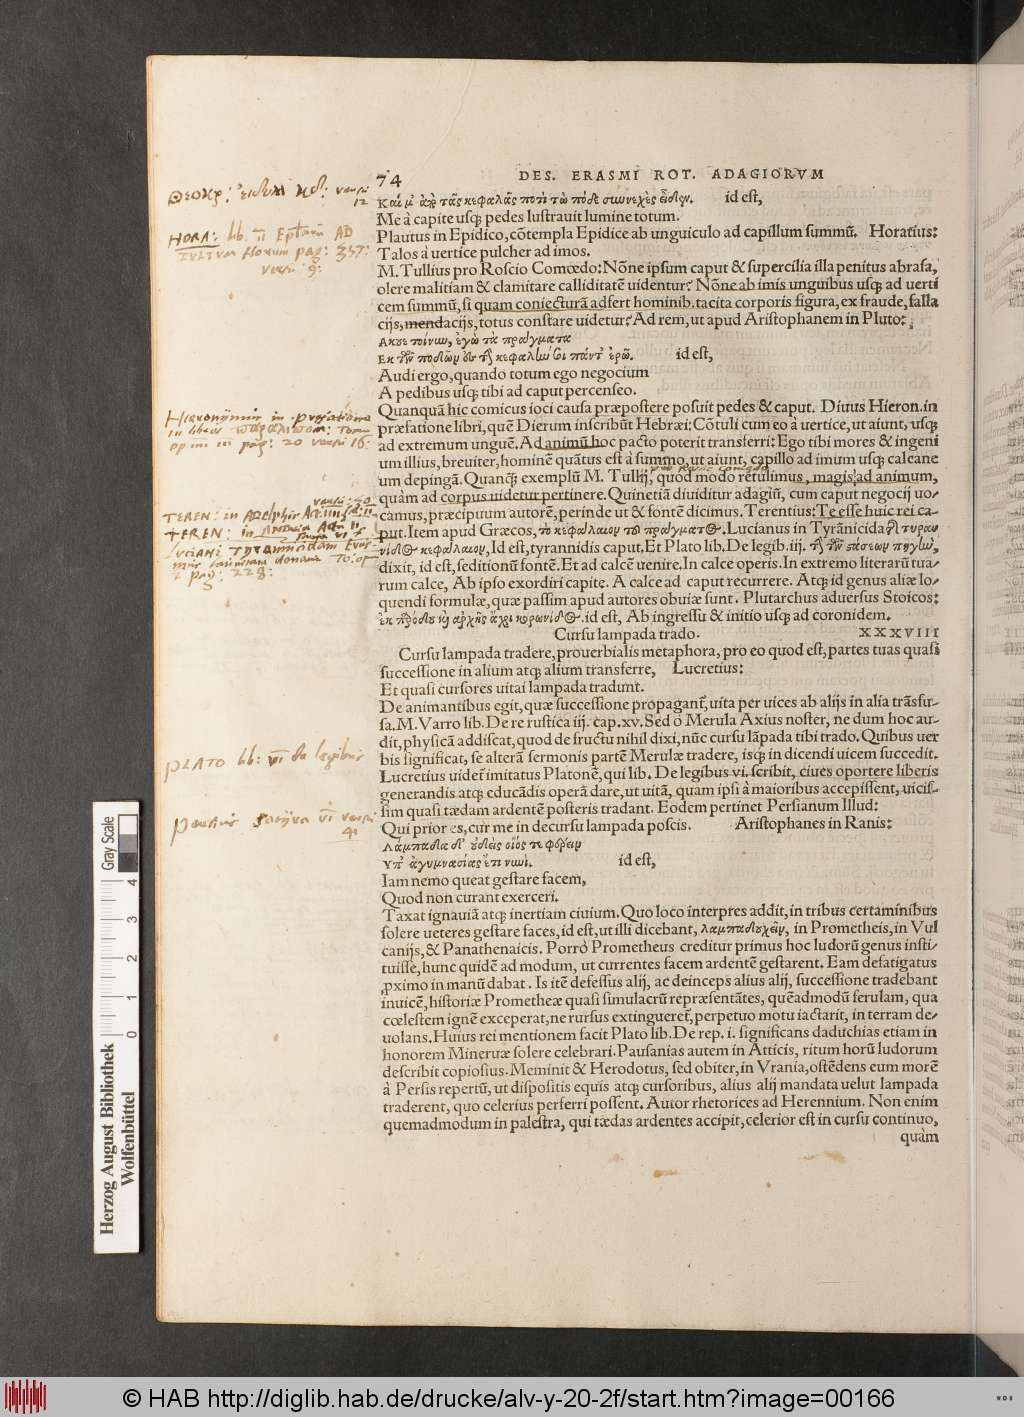 74 DES. ERASMI ROT. ADAGIORVM
Καί μ' ἀπὸ τᾶς κεφαλᾶς ποτὶ τὼ πόδε συνεχὲς εἶδεν. id est,
Me à capite usq; pedes lustrauit lumine totum.
Plautus in Epidico, cōtempla Epidice ab unguiculo ad capillum summū. Horatius:
Talos à uertice pulcher ad imos.
M. Tullius pro Roscio Comœdo: Nōne ipsum caput & supercilia illa penitus abrasa,
olere malitiam & clamitare calliditatē uidentur? Nōne ab imis unguibus usq; ad uerti
cem summū, si quam coniecturā adfert hominib. tacita corporis figura, ex fraude, falla
cijs, mendacijs, totus constare uidetur? Ad rem, ut apud Aristophanem in Pluto:
Ακουε τοίνυν, ἐγὼ τὰ πράγματα
Εκ τῶν ποδῶν ἐς τὴν κεφαλήν σοι πάντ' ἐρῶ. id est,
Audi ergo, quando totum ego negocium
A pedibus usq; tibi ad caput percenseo.
Quanquā hic comicus ioci causa præpostere posuit pedes & caput. Diuus Hieron. in
præfatione libri, quē Dierum inscribūt Hebræi: Cōtuli cum eo à uertice, ut aiunt, usq;
ad extremum unguē. Ad animū hoc pacto poterit transferri: Ego tibi mores & ingeni
um illius, breuiter, hominē quātus est à summo, ut aiunt, capillo ad imum usq; calcane
um depingā. Quanq̄ exemplū M. Tullij, quod modo retulimus, magis ad animum,
quàm ad corpus uidetur pertinere. Quinetiā diuiditur adagiū, cum caput negocij uo-
camus, præcipuum autorē, perinde ut & fontē dicimus. Terentius: Te esse huic rei ca-
put. Item apud Græcos, τὸ κεφάλαιον τοῦ πράγματος. Lucianus in Tyrānicida, τυραν
νίδος κεφάλαιον, Id est, tyrannidis caput. Et Plato lib. De legib. iij. τὴν τῶν στάσεων πηγὴν,
dixit, id est, seditionū fontē. Et ad calcē uenire. In calce operis. In extremo literarū tua-
rum calce, Ab ipso exordiri capite. A calce ad caput recurrere. Atq; id genus aliæ lo-
quendi formulæ, quæ passim apud autores obuiæ sunt. Plutarchus aduersus Stoicos:
ἐκ προόδου καὶ ἀρχῆς ἄχρι κορωνίδος. id est, Ab ingressu & initio usq; ad coronidem.
Cursu lampada trado. XXXVIII
Cursu lampada tradere, prouerbialis metaphora, pro eo quod est, partes tuas quasi
successione in alium atq; alium transferre, Lucretius:
Et quasi cursores uitai lampada tradunt.
De animantibus egit, quæ successione propagant̃, uita per uices ab alijs in alia trāsfu-
sa. M. Varro lib. De re rustica iij. cap. xv. Sed ô Merula Axius noster, ne dum hoc au-
dit, physicā addiscat, quod de fructu nihil dixi, nūc cursu lāpada tibi trado. Quibus uer
bis significat, se alterā sermonis partē Merulæ tradere, isq; in dicendi uicem succedit.
Lucretius uidet̃ imitatus Platonē, qui lib. De legibus vi. scribit, ciues oportere liberis
generandis atq; educādis operā dare, ut uitā, quam ipsi à maioribus accepissent, uicis-
sim quasi tædam ardentē posteris tradant. Eodem pertinet Persianum illud:
Qui prior es, cur me in decursu lampada poscis. Aristophanes in Ranis:
Λαμπάδα δ' οὐδεὶς οἷός τε φέρειν
Υπ' ἀγυμνασίας ἔτι νυνί. id est,
Iam nemo queat gestare facem,
Quod non curant exerceri.
Taxat ignauiā atq; inertiam ciuium. Quo loco interpres addit, in tribus certaminibus
solere ueteres gestare faces, id est, ut illi dicebant, λαμπαδουχεῖν, in Prometheis, in Vul
canijs, & Panathenaicis. Porrò Prometheus creditur primus hoc ludorū genus insti-
tuisse, hunc quidē ad modum, ut currentes facem ardentē gestarent. Eam defatigatus
ꝓximo in manū dabat. Is itē defessus alij, ac deinceps alius alij, successione tradebant
inuicē, historiæ Prometheæ quasi simulacrū repræsentātes, quēadmodū ferulam, qua
cœlestem ignē exceperat, ne rursus extingueret̃, perpetuo motu iactarit, in terram de-
uolans. Huius rei mentionem facit Plato lib. De rep. i. significans daduchias etiam in
honorem Mineruæ solere celebrari. Pausanias autem in Atticis, ritum horū ludorum
describit copiosius. Meminit & Herodotus, sed obiter, in Vrania, ostēdens eum morē
à Persis repertū, ut dispositis equis atq; cursoribus, alius alij mandata uelut lampada
traderent, quo celerius perferri possent. Autor rhetorices ad Herennium. Non enim
quemadmodum in palestra, qui tædas ardentes accipit, celerior est in cursu continuo,
quàm
HORA: lib. ii Epl̄arū AD
Hieronimus in præfatione
TEREN: in Adelphis
TEREN: in Andria
PLATO lib: vi de legibus
Persius Satyra vi versu
41
Gray Scale
4
3
2
1
0
Herzog August Bibliothek
Wolfenbüttel
© HAB http://diglib.hab.de/drucke/alv-y-20-2f/start.htm?image=00166